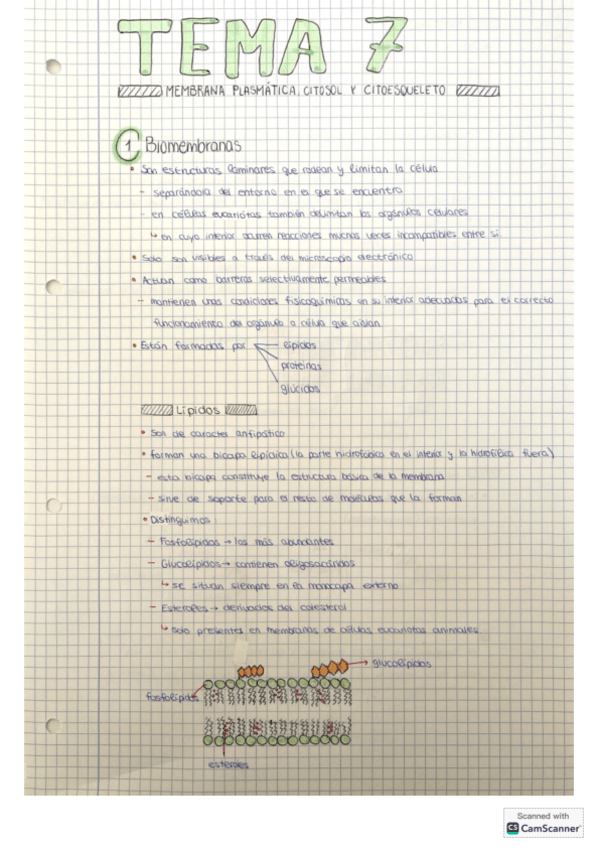 TEMA 7
MEMBRANA PLASMÁTICA, CITOSOL Y CITOESQUELETO
1 Biomembranas
• Son estructuras laminares que rodean y limitan la célula
- separándola del entorno en el que se encuentra
- en células eucariotas también delimitan los orgánulos celulares
↳ en cuyo interior ocurren reacciones muchas veces incompatibles entre sí
• Solo son visibles a través del microscopio electrónico
• Actúan como barreras selectivamente permeables
- mantienen unas condiciones fisicoquímicas en su interior adecuadas para el correcto
funcionamiento del orgánulo o célula que aíslan
• Están formadas por lípidos
proteínas
glúcidos
Lípidos
• Son de caracter anfipático
• forman una bicapa lipídica (la parte hidrofóbica en el interior y la hidrofílica fuera)
- esta bicapa constituye la estructura básica de la membrana
- sirve de soporte para el resto de moléculas que la forman
• Distinguimos
- Fosfolípidos → los más abundantes
- Glucolípidos → contienen oligosacáridos
↳ se sitúan siempre en la monocapa externa
- Esteroles → derivados del colesterol
↳ solo presentes en membranas de células eucariotas animales
glucolípidos
fosfolípidos
esteroles
Scanned with
CS CamScanner